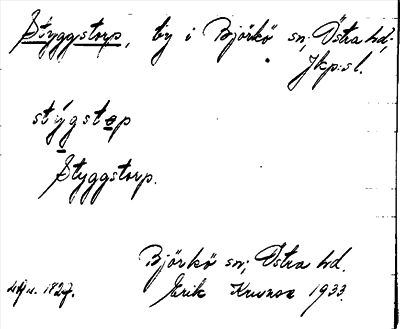 Styggstorp, by i Björkö sn; Östra hd;
Jkp:sl.
stýgstɷp
Styggstorp.
Björkö sn; Östra hd.
1827. Erik 1933.